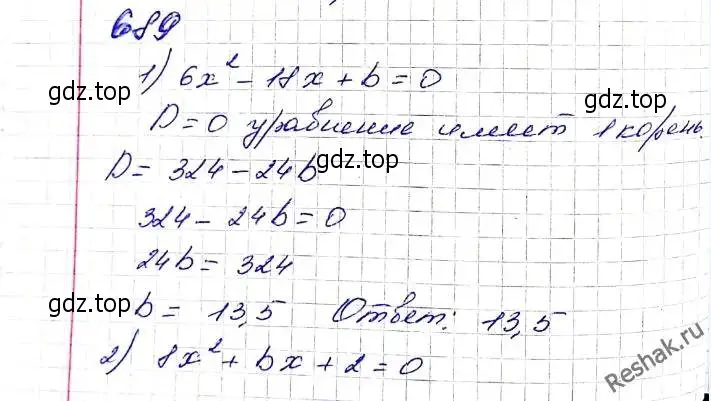 689
1) 6x² - 18x + b = 0
gdz.top
gdz.top
D = 0 уравнение имеет 1 корень.
D = 324 - 24b
gdz.top
324 - 24b = 0
24b = 324
gdz.top
gdz.top
b = 13,5 Ответ: 13,5
2) 8x² + bx + 2 = 0
Reshak.ru